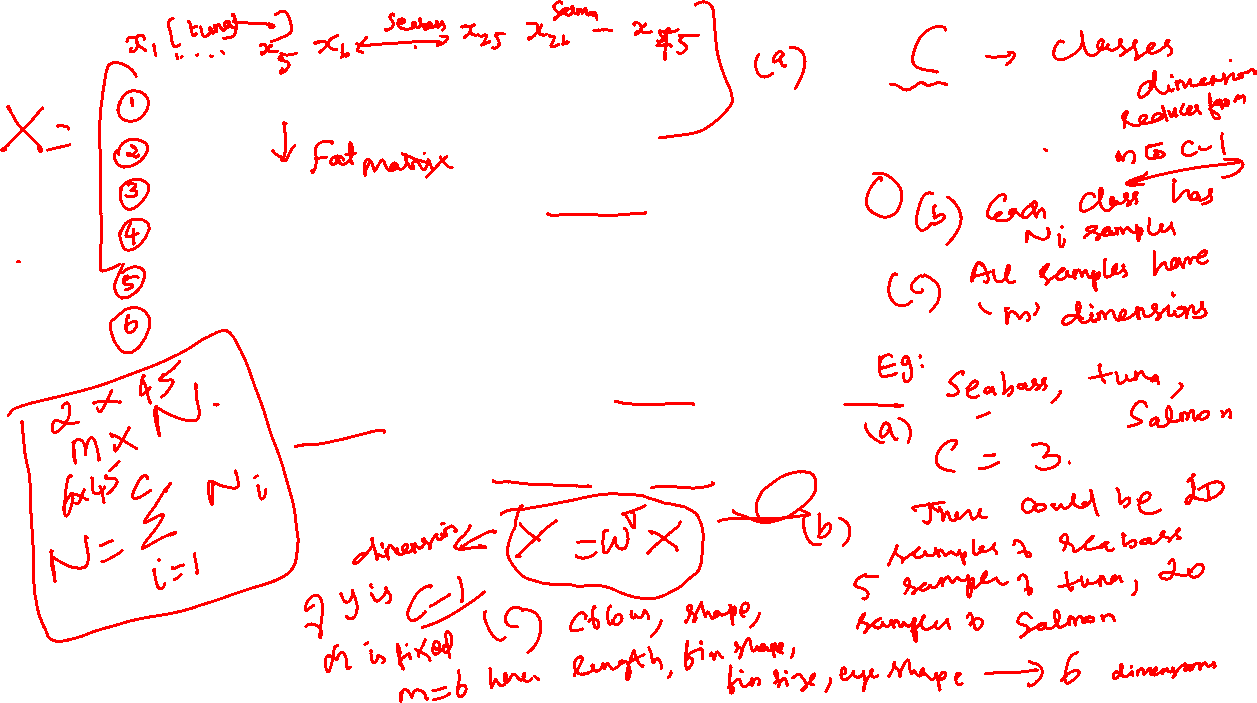 x₁ [tuna] x₅ x₆ Seabass x₂₅ x₂₆ Salmon - x₄₅ (a)
.... 
X =
①
②
③
④
⑤
⑥
↓ Fat matrix
C → classes
dimension
reduces from
m to C-1
(b) Each class has
Ni samples
(c) All samples have
'm' dimensions
Eg:
Seabass, tuna,
Salmon
(a)
C = 3.
There could be 20
samples of seabass
5 samples of tuna, 20
samples of Salmon
2 x 45
m x N.
6x45
N = C Σ i=1 Ni
Y = Wᵀ X (b)
dimension ←
of y is C-1
m is fixed
m=6 here
(c) colour, shape,
length, fin shape,
fin size, eye shape → 6 dimensions